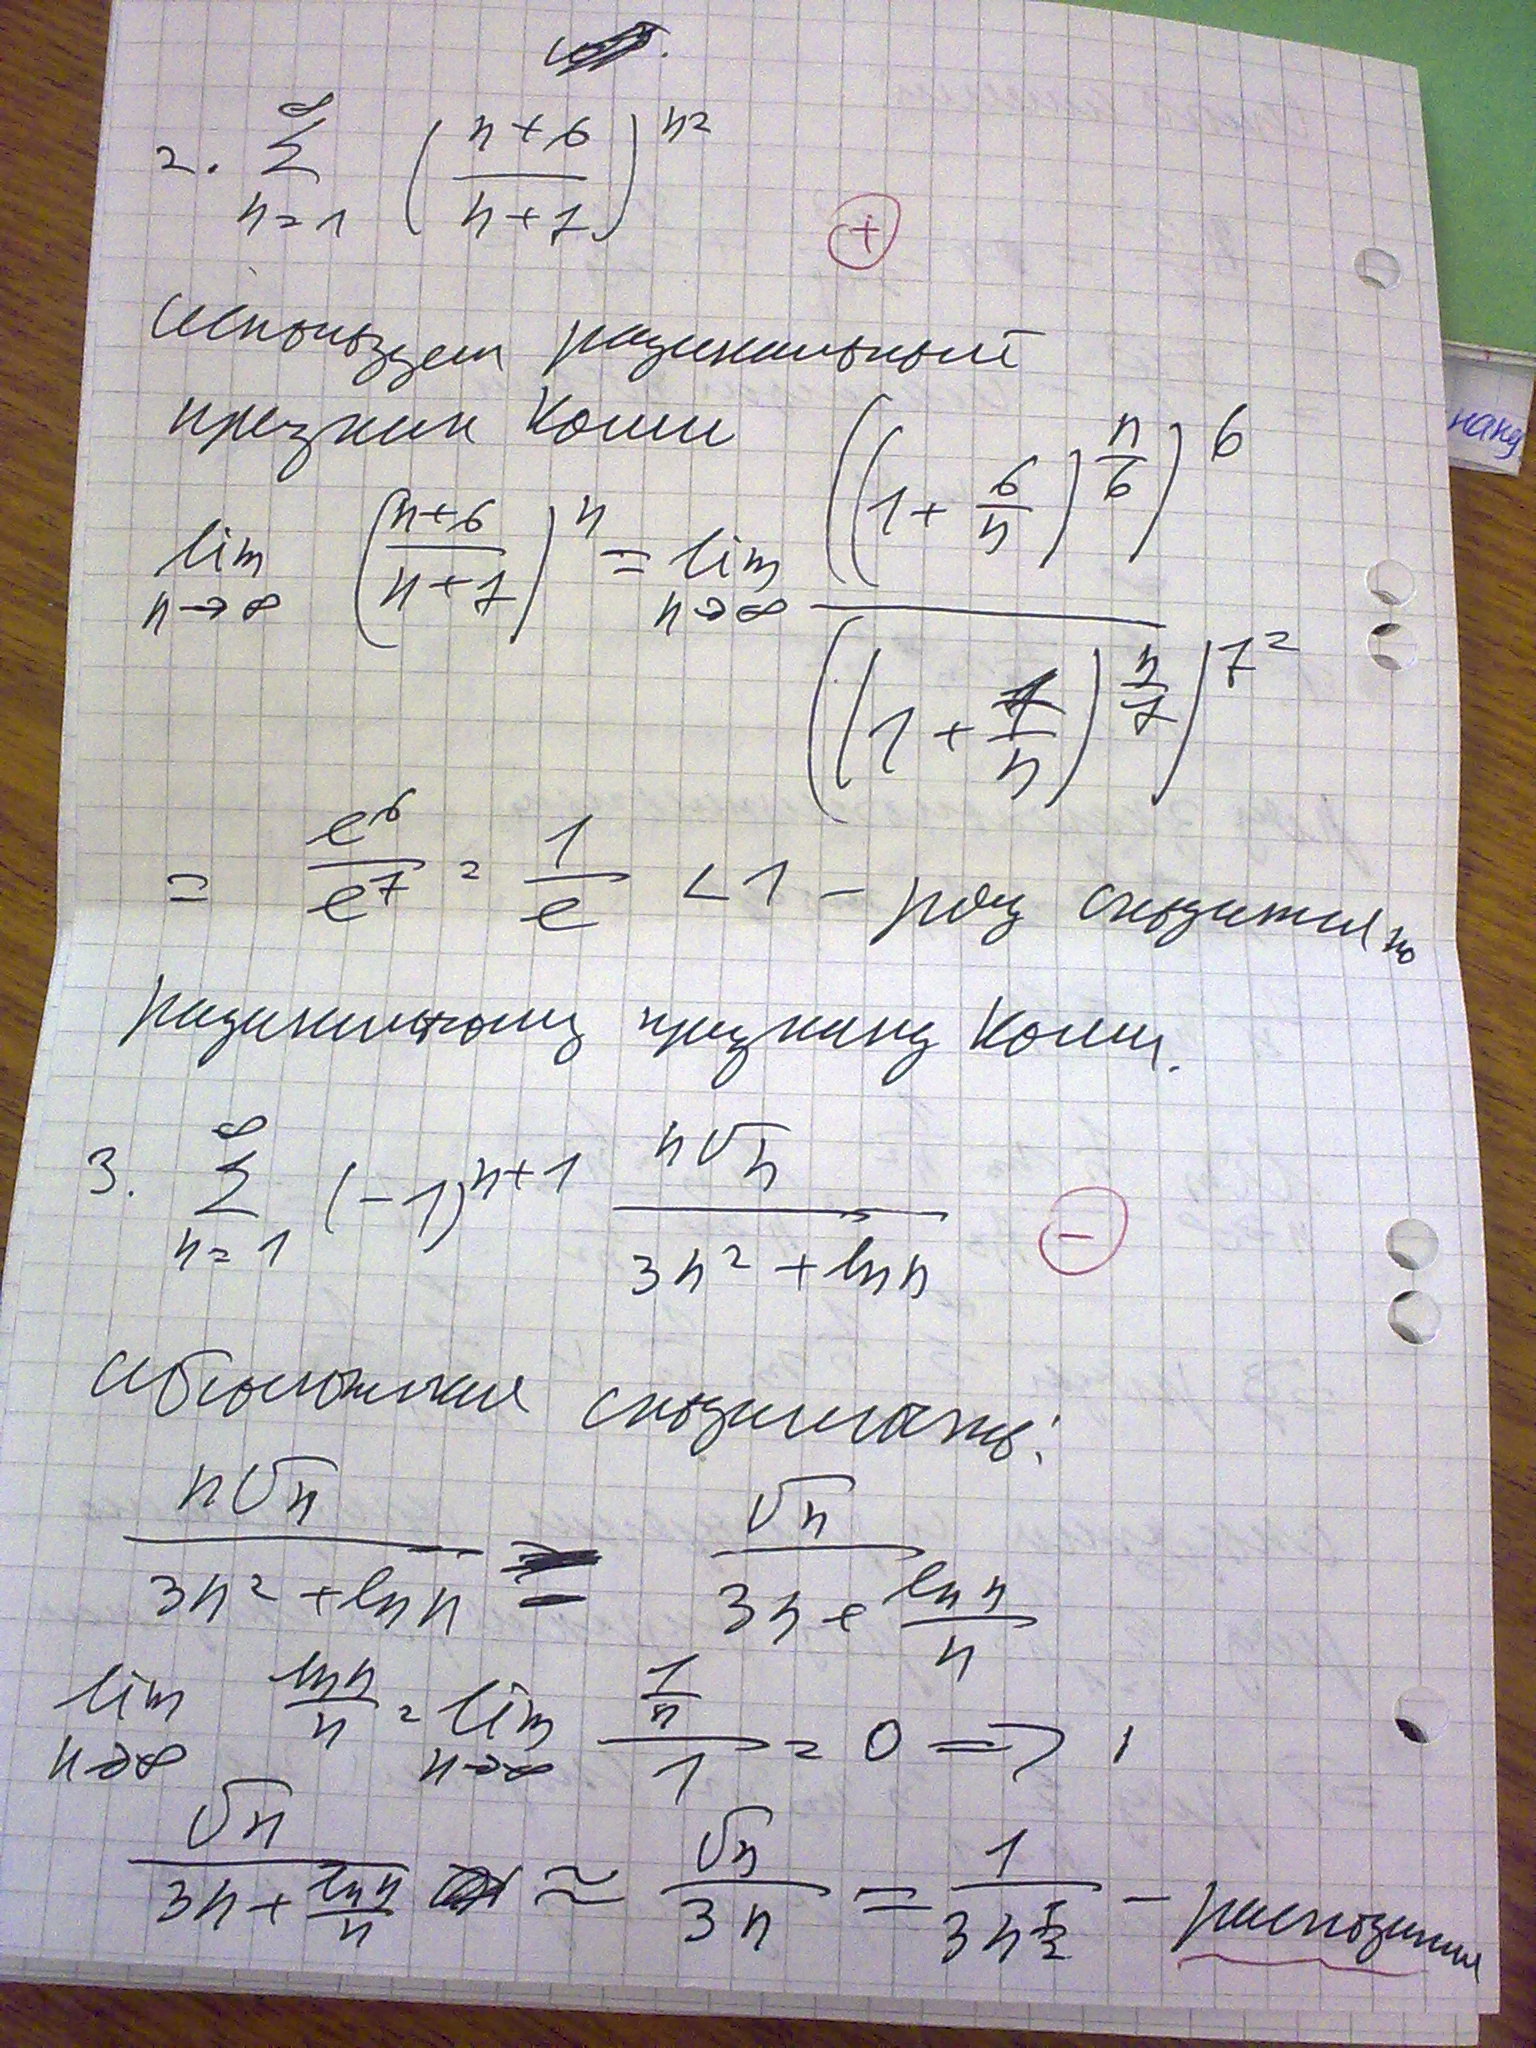 2. ∞ Σ n=1 ((n+6)/(n+7))^n²
+
Используем радикальный
признак Коши
lim n→∞ ((n+6)/(n+7))^n = lim n→∞ ((1+6/n)^(n/6))^6 / ((1+7/n)^(n/7))^7 =
= e^6/e^7 = 1/e < 1 – ряд сходится по
радикальному признаку Коши.
3. ∞ Σ n=1 (-1)^(n+1) n√n/(3n²+ln n)
–
Абсолютная сходимость:
n√n/(3n²+ln n) = √n/(3n+ln n/n)
lim n→∞ ln n/n = lim n→∞ (1/n)/1 = 0 =>
√n/(3n+ln n/n) ≈ √n/3n = 1/(3n^(1/2)) – расходится
нака